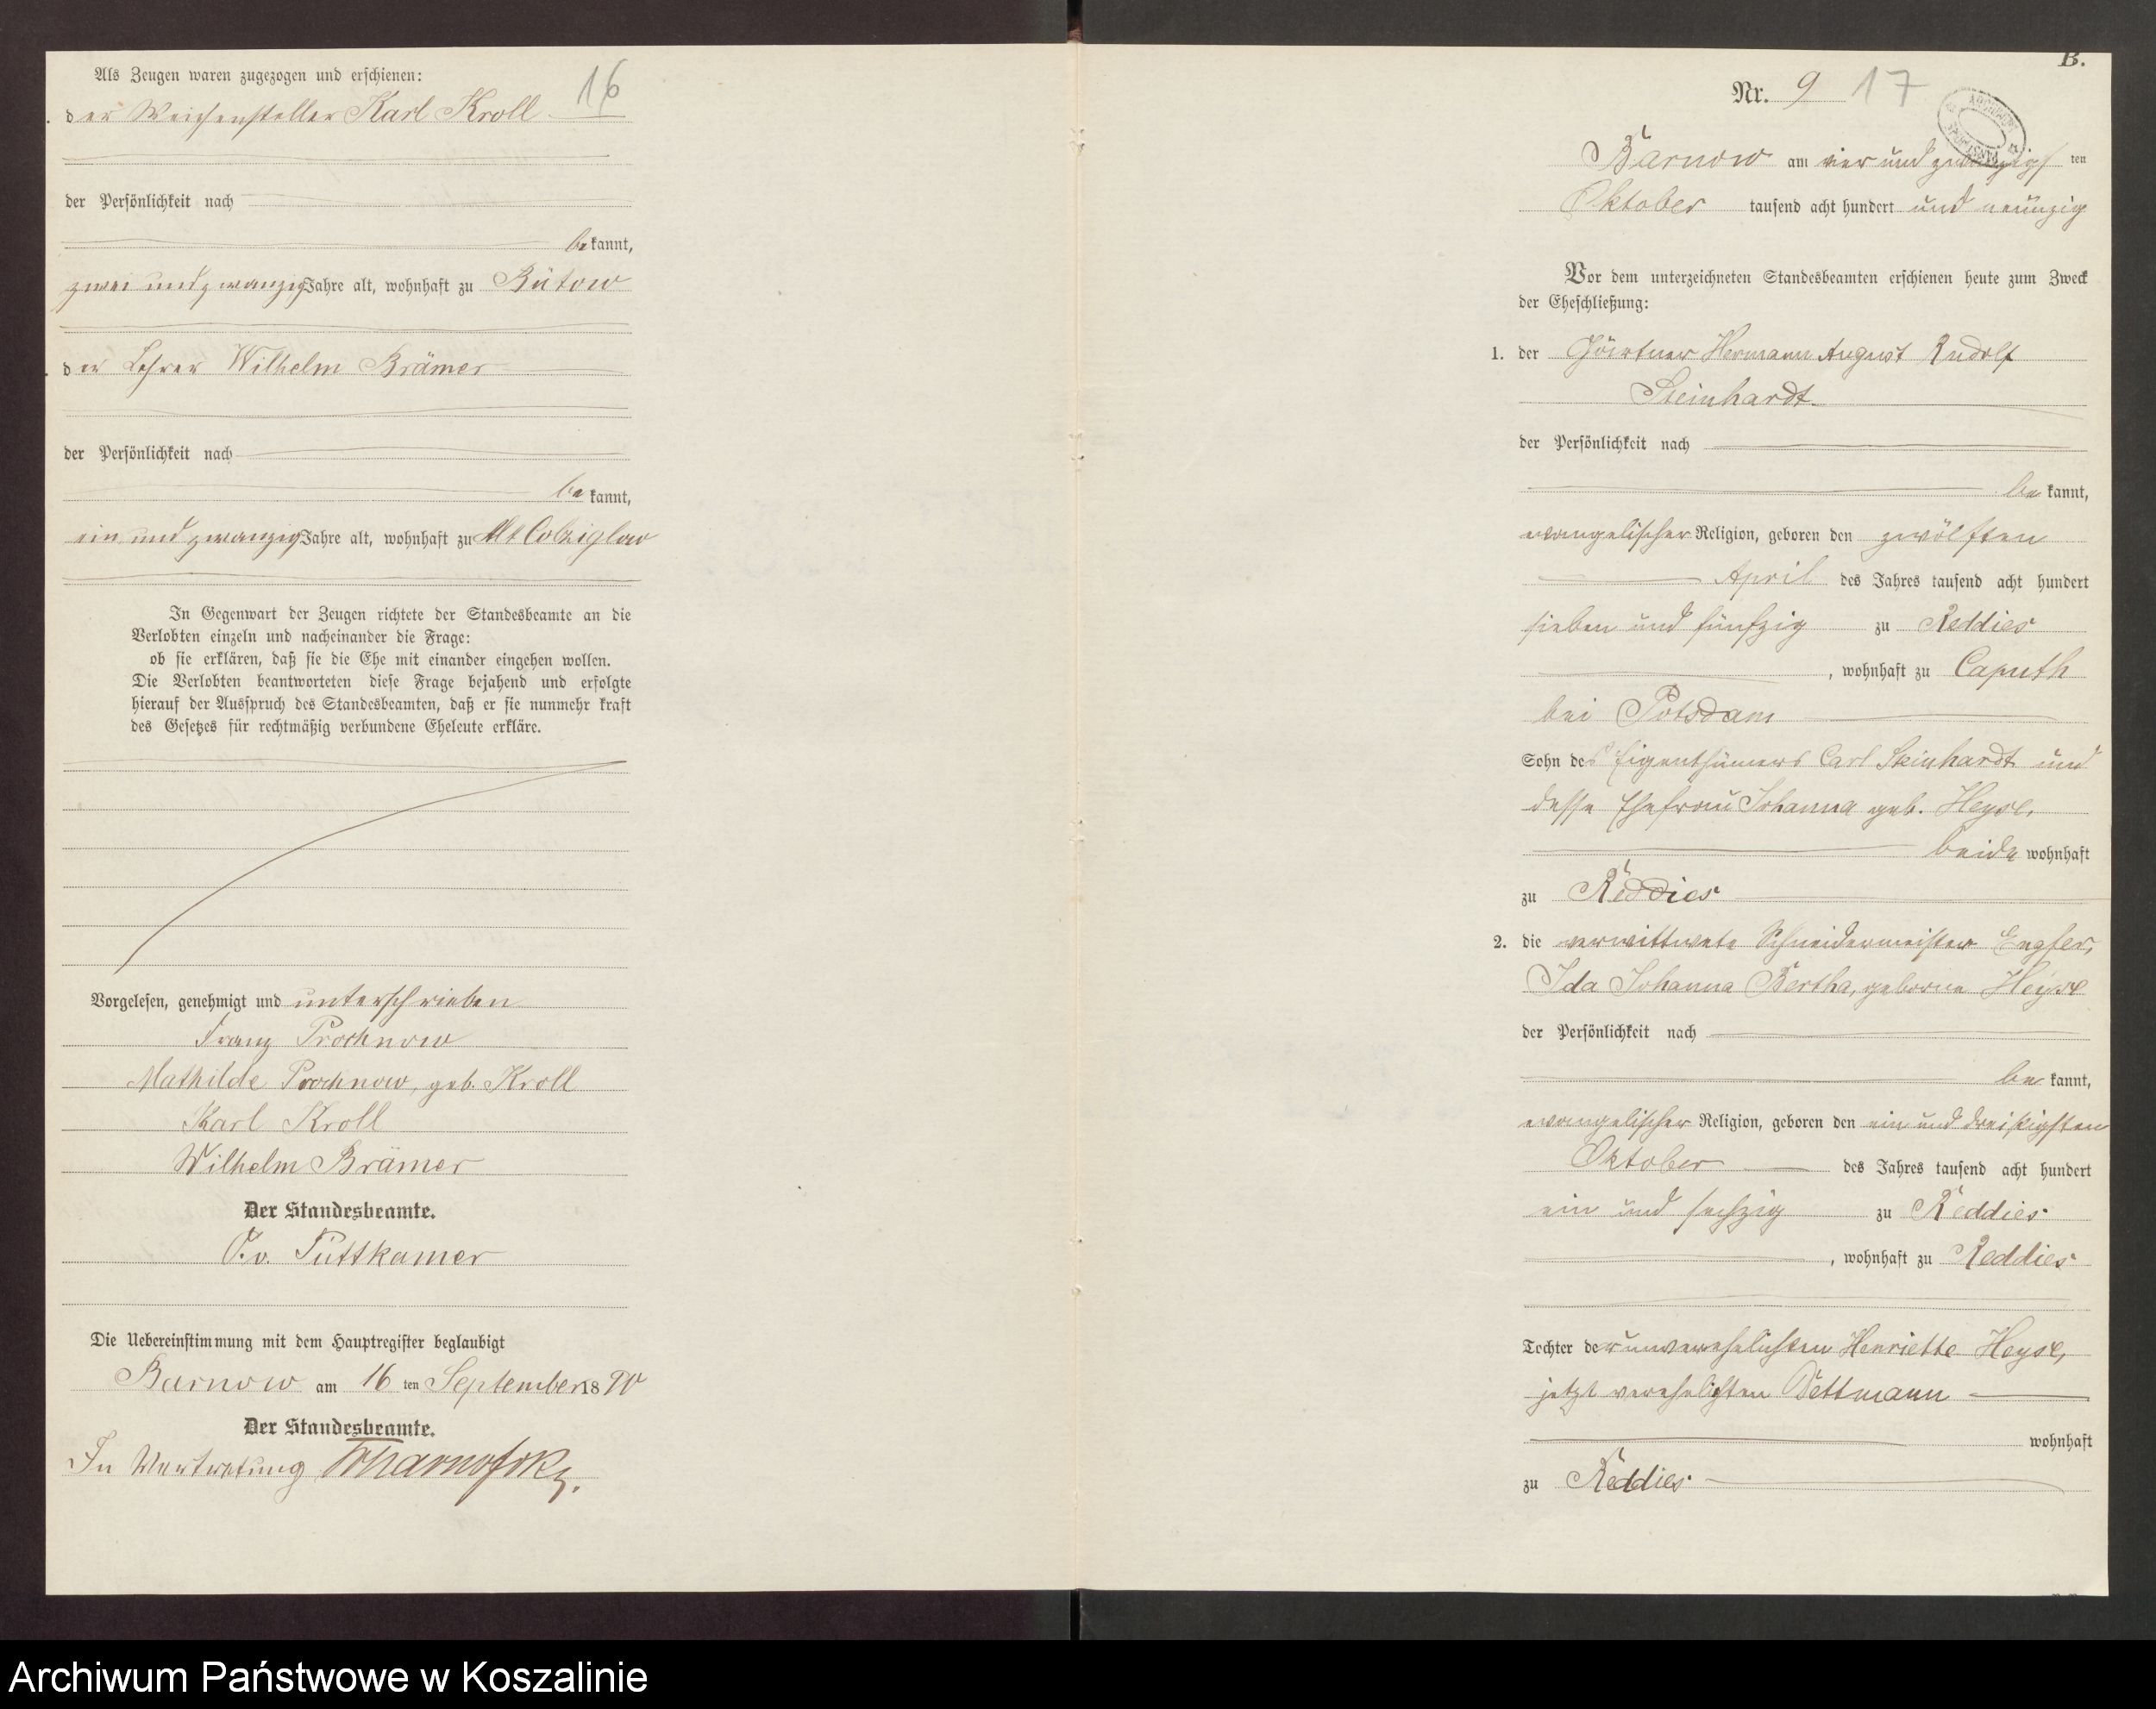 16
Als Zeugen waren zugezogen und erschienen:
der Weichensteller Karl Kroll
der Persönlichkeit nach
bekannt,
zwei und zwanzig Jahre alt, wohnhaft zu Bütow
der Lehrer Wilhelm Brämer
der Persönlichkeit nach
be kannt,
ein und zwanzig Jahre alt, wohnhaft zu Alt Colziglow
In Gegenwart der Zeugen richtete der Standesbeamte an die
Verlobten einzeln und nacheinander die Frage:
ob sie erklären, daß sie die Ehe mit einander eingehen wollen.
Die Verlobten beantworteten diese Frage bejahend und erfolgte
hierauf der Ausspruch des Standesbeamten, daß er sie nunmehr kraft
des Gesetzes für rechtmäßig verbundene Eheleute erkläre.
Vorgelesen, genehmigt und unterschrieben
Franz Prochnow
Mathilde Prochnow, geb. Kroll
Karl Kroll
Wilhelm Brämer
Der Standesbeamte.
v. Puttkamer
Die Uebereinstimmung mit dem Hauptregister beglaubigt
Barnow am 16 ten September 18 90
Der Standesbeamte.
In Vertretung
B.
Nr. 9 17
Barnow am vier und zwanzigs ten
Oktober tausend acht hundert und neunzig
Vor dem unterzeichneten Standesbeamten erschienen heute zum Zweck
der Eheschließung:
1. der Gärtner Hermann August Rudolf
Steinhardt
der Persönlichkeit nach
be kannt,
evangelischer Religion, geboren den zwölften
April des Jahres tausend acht hundert
sieben und fünfzig zu Reddies
, wohnhaft zu Caputh
bei Potsdam
Sohn des Eigenthümers Carl Steinhardt und
desse Ehefrau Johanna geb. Heyse,
beide wohnhaft
zu Reddies
2. die verwittwete Schneidermeister Engfer,
Ida Johanna Bertha, geborne Heyse
der Persönlichkeit nach
be kannt,
evangelischer Religion, geboren den ein und dreißigsten
Oktober des Jahres tausend acht hundert
ein und sechzig zu Reddies
, wohnhaft zu Reddies
Tochter der unverehelichten Henriette Heyse,
jetzt verehelichten Dettmann
wohnhaft
zu Reddies
Archiwum Państwowe w Koszalinie